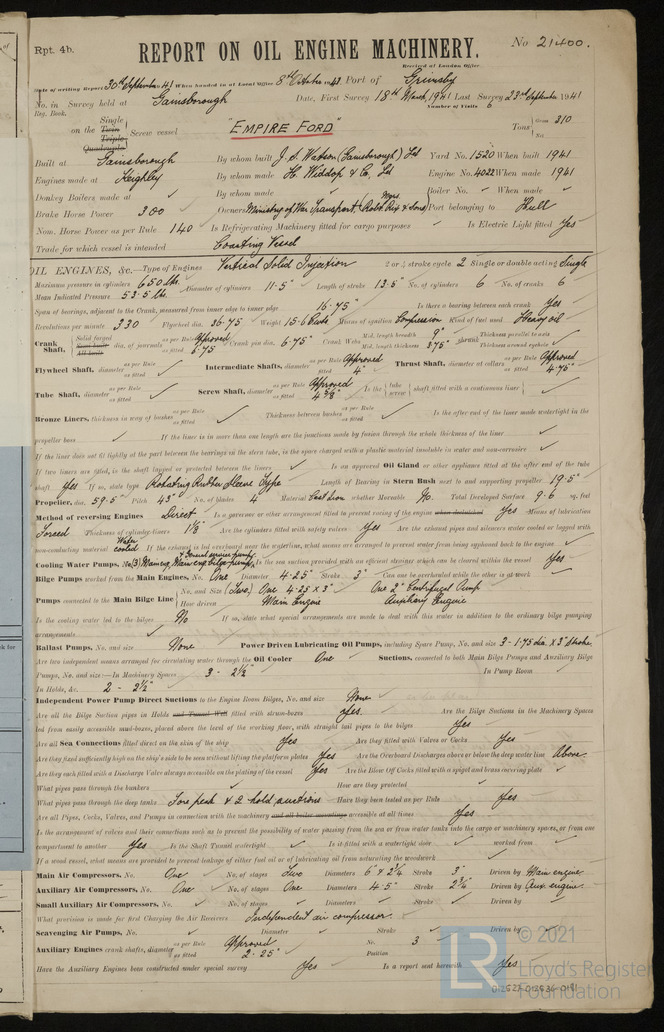 Rpt. 4b.
REPORT ON OIL ENGINE MACHINERY.
No 21400.
Received at London Office
Date of writing Report 30th September 41 When handed in at Local Office 8th October 1941 Port of Grimsby
No. in Survey held at Gainsborough Date, First Survey 18th March 1941 Last Survey 23rd September 1941
Reg. Book. Number of Visits 6
on the Single Twin Triple Quadruple Screw vessel "EMPIRE FORD" Tons Gross 310 Net
Built at Gainsborough By whom built J. S. Watson (Gainsborough) Ltd Yard No. 1520 When built 1941
Engines made at Keighley By whom made H. Widdop & Co, Ltd Engine No. 4022 When made 1941
Donkey Boilers made at ✓ By whom made ✓ Boiler No. ✓ When made ✓
Brake Horse Power 300 Owners Ministry of War Transport (Mgrs Robt. Rix & Sons) Port belonging to Hull
Nom. Horse Power as per Rule 140 Is Refrigerating Machinery fitted for cargo purposes ✓ Is Electric Light fitted Yes
Trade for which vessel is intended Coasting Vessel
OIL ENGINES, &c.—Type of Engines Vertical Solid Injection 2 or 4 stroke cycle 2 Single or double acting Single
Maximum pressure in cylinders 650 lbs. Diameter of cylinders 11.5" Length of stroke 13.5" No. of cylinders 6 No. of cranks 6
Mean Indicated Pressure 53.5 lbs.
Span of bearings, adjacent to the Crank, measured from inner edge to inner edge 16.75" Is there a bearing between each crank Yes
Revolutions per minute 330 Flywheel dia. 36.75" Weight 15.6 Cwts Means of ignition Compression Kind of fuel used Heavy oil
Crank Shaft, Solid forged Semi built All built dia. of journals as per Rule Approved as fitted 6.75" Crank pin dia. 6.75" Crank Webs Mid. length breadth 9" Mid. length thickness 3.75" shrunk Thickness parallel to axis Thickness around eyehole
Flywheel Shaft, diameter as per Rule as fitted Intermediate Shafts, diameter as per Rule Approved as fitted 4" Thrust Shaft, diameter at collars as per Rule Approved as fitted 4.75"
Tube Shaft, diameter as per Rule as fitted Screw Shaft, diameter as per Rule Approved as fitted 4 7/8" Is the tube screw shaft fitted with a continuous liner
Bronze Liners, thickness in way of bushes as per Rule as fitted Thickness between bushes as per Rule as fitted Is the after end of the liner made watertight in the
propeller boss ✓ If the liner is in more than one length are the junctions made by fusion through the whole thickness of the liner ✓
If the liner does not fit tightly at the part between the bearings in the stern tube, is the space charged with a plastic material insoluble in water and non-corrosive ✓
If two liners are fitted, is the shaft lapped or protected between the liners ✓ Is an approved Oil Gland or other appliance fitted at the after end of the tube
shaft Yes If so, state type Rotating Rubber Sleeve Type Length of Bearing in Stern Bush next to and supporting propeller 19.5"
Propeller, dia. 59.5" Pitch 43" No. of blades 4 Material Cast Iron whether Moveable No. Total Developed Surface 9.6 sq. feet
Method of reversing Engines Direct Is a governor or other arrangement fitted to prevent racing of the engine when declutched Yes Means of lubrication
Forced Thickness of cylinder liners 1 1/8" Are the cylinders fitted with safety valves Yes Are the exhaust pipes and silencers water cooled or lagged with
non-conducting material Water cooled If the exhaust is led overboard near the waterline, what means are arranged to prevent water from being syphoned back to the engine ✓
Cooling Water Pumps, No. (3) Main eng., Main eng. bilge pump, & General service pump Is the sea suction provided with an efficient strainer which can be cleared within the vessel Yes
Bilge Pumps worked from the Main Engines, No. One Diameter 4.25" Stroke 3" Can one be overhauled while the other is at work ✓
Pumps connected to the Main Bilge Line No. and Size (Two) One 4.25" x 3" One 2" Centrifugal Pump
How driven Main Engine Auxiliary Engine
Is the cooling water led to the bilges No If so, state what special arrangements are made to deal with this water in addition to the ordinary bilge pumping
arrangements ✓
Ballast Pumps, No. and size None Power Driven Lubricating Oil Pumps, including Spare Pump, No. and size 3 - 1.75 dia. x 3" stroke
Are two independent means arranged for circulating water through the Oil Cooler One Suctions, connected to both Main Bilge Pumps and Auxiliary Bilge
Pumps, No. and size:—In Machinery Spaces 3 - 2 1/2" In Pump Room ✓
In Holds, &c. 2 - 2 1/2"
Independent Power Pump Direct Suctions to the Engine Room Bilges, No. and size None
Are all the Bilge Suction pipes in Holds and Tunnel Well fitted with strum-boxes Yes. Are the Bilge Suctions in the Machinery Spaces
led from easily accessible mud-boxes, placed above the level of the working floor, with straight tail pipes to the bilges Yes
Are all Sea Connections fitted direct on the skin of the ship Yes Are they fitted with Valves or Cocks Yes
Are they fixed sufficiently high on the ship's side to be seen without lifting the platform plates Yes Are the Overboard Discharges above or below the deep water line Above.
Are they each fitted with a Discharge Valve always accessible on the plating of the vessel Yes Are the Blow Off Cocks fitted with a spigot and brass covering plate ✓
What pipes pass through the bunkers ✓ How are they protected ✓
What pipes pass through the deep tanks Fore peak & 2 hold suctions Have they been tested as per Rule Yes
Are all Pipes, Cocks, Valves, and Pumps in connection with the machinery and all boiler mountings accessible at all times Yes
Is the arrangement of valves and their connections such as to prevent the possibility of water passing from the sea or from water tanks into the cargo or machinery spaces, or from one
compartment to another Yes Is the Shaft Tunnel watertight ✓ Is it fitted with a watertight door ✓ worked from ✓
If a wood vessel, what means are provided to prevent leakage of either fuel oil or of lubricating oil from saturating the woodwork ✓
Main Air Compressors, No. One No. of stages Two Diameters 6" & 2 3/4" Stroke 3" Driven by Main engine
Auxiliary Air Compressors, No. One No. of stages One Diameters 4.5" Stroke 2 3/4" Driven by Aux. engine.
Small Auxiliary Air Compressors, No. ✓ No. of stages ✓ Diameters ✓ Stroke ✓ Driven by ✓
What provision is made for first Charging the Air Receivers Independent air compressor.
Scavenging Air Pumps, No. ✓ Diameter ✓ Stroke ✓ Driven by ✓
Auxiliary Engines crank shafts, diameter as per Rule Approved as fitted 2.25" No. 3 Position
Have the Auxiliary Engines been constructed under special survey Yes Is a report sent herewith Yes
LR © 2021
Lloyd's Register
Foundation